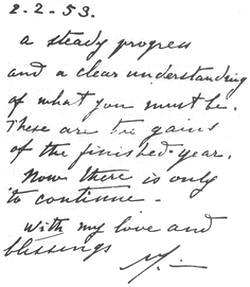 2-2-53.
a steady progress
and a clear understanding
of what you must be.
These are the gains
of the finished year.
Now there is only
to continue -
With my love and
blessings